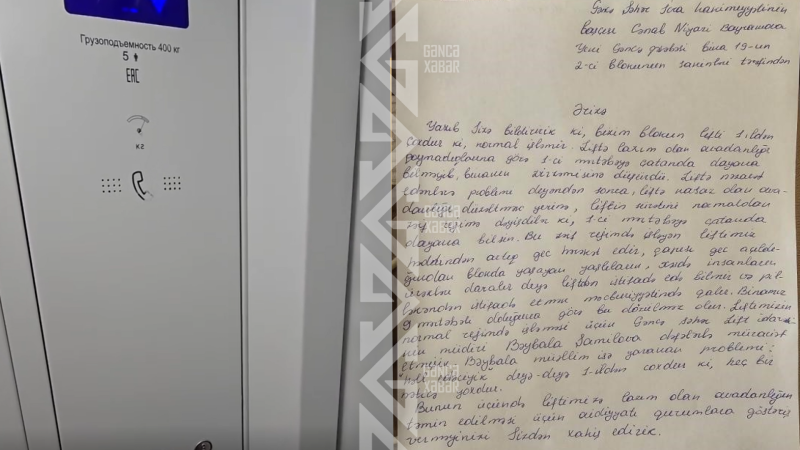 Грузоподъемность 400 кг
5
EAC
кг
GƏNCƏ
XƏBƏR
Gəncə Şəhər İcra hakimiyyətinin
başçısı Cənab Niyazi Bayramova
Yeni Gəncə bina 19-un
2-ci blokunun sakinləri tərəfindən
Ərizə
Yazıb Sizə bildiririk ki, bizim blokun lifti 1 ildən
çoxdur ki, normal işləmir. Liftə lazım olan avadanlığı
qoymadıqlarına görə 1-ci mərtəbəyə çatanda dayana
bilməyib, binanın zirzəmisinə düşürdü. Liftə nəzarət
edənlərə problemi deyəndən sonra, liftə nasaz olan ava-
danlığı düzəltmək yerinə, liftin sürətini normaldan
zəif rejimə dəyişdilər ki, 1-ci mərtəbəyə çatanda
dayana bilsin. Bu zəif rejimdə işləyən liftimiz
həddindən artıq gec hərəkət edir, qapısı gec açıldı-
ğından blokda yaşayan yaşlıların, xəstə insanların
ürəkləri daralır deyə liftdən istifadə edə bilmir və pil-
ləkəndən istifadə etmək məcburiyyətində qalır. Binamız
9 mərtəbəli olduğuna görə bu dözülməz olur. Liftimizin
normal rejimdə işləməsi üçün Gəncə şəhər Lift idarəsi-
nin müdiri Bəybala Şamilova dəfələrlə müraciət
etmişik. Bəybala müəllim isə yaranan problemi:
"həll edəcəyik" deyə-deyə 1 ildən çoxdur ki, heç bir
nəticə yoxdur.
Bunun üçündə liftimizə lazım olan avadanlığın
təmin edilməsi üçün aidiyyəti qurumlara göstəriş
verməyinizi Sizdən xahiş edirik.